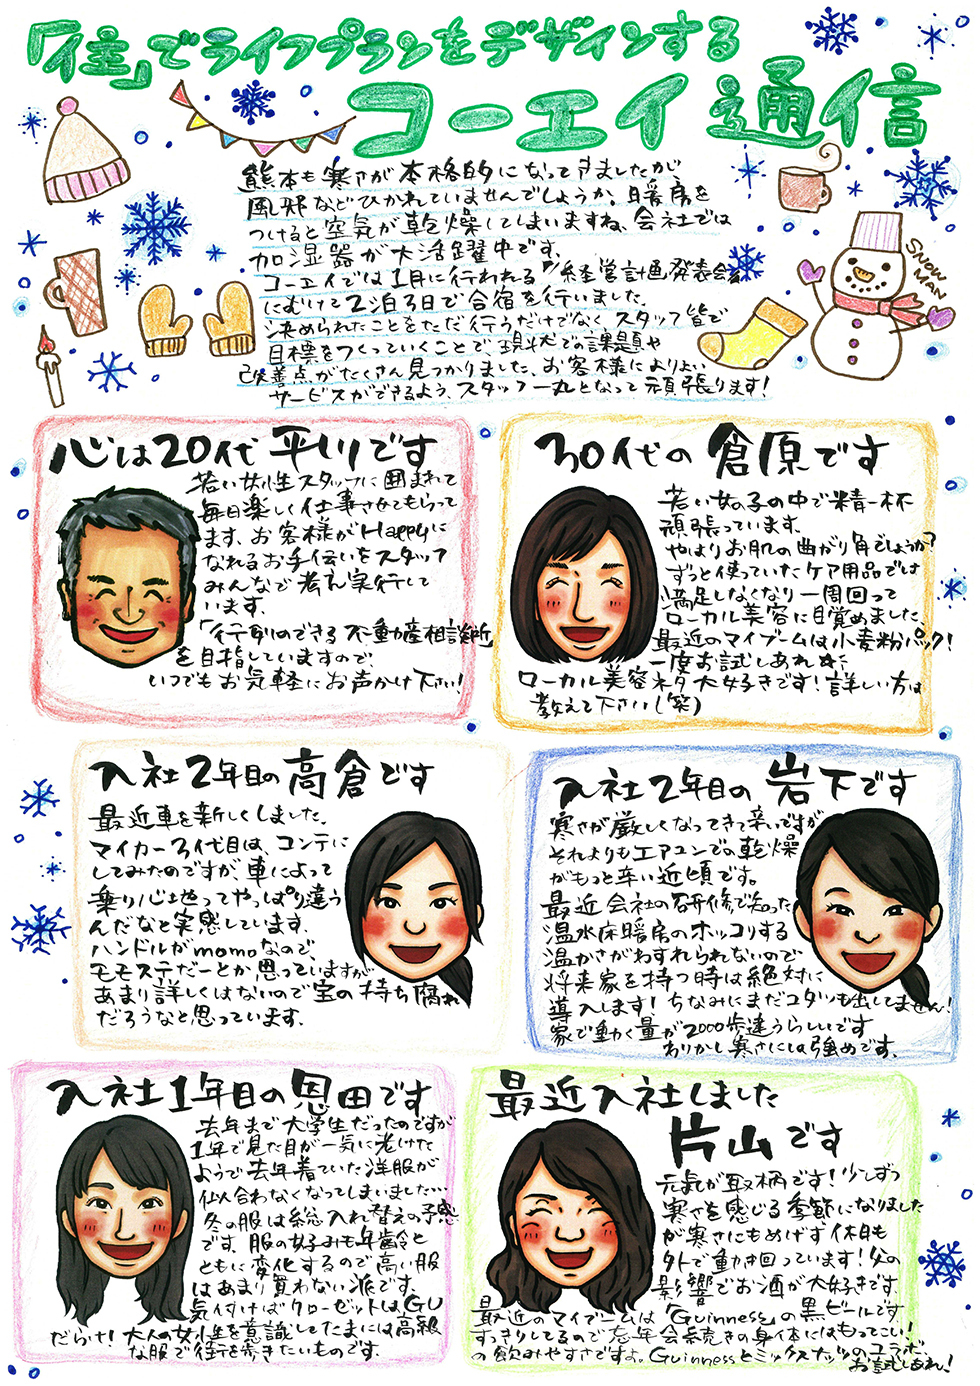 「住」でライフプランをデザインする
コーエイ通信
熊本も寒さが本格的になってきましたが、
風邪などひかれていませんでしょうか。暖房を
つけると空気が乾燥してしまいますね。会社では
加湿器が大活躍中です。
コーエイでは1月に行われる「経営計画発表会」
にむけて2泊3日で合宿を行いました。
決められたことをただ行うだけでなくスタッフ皆で
目標をつくっていくことで、現状での課題や
改善点がたくさん見つかりました。お客様により良い
サービスができるよう、スタッフ一丸となって頑張ります!
SNOW MAN
心は20代 平川です
若い女性スタッフに囲まれて
毎日楽しく仕事させてもらって
ます。お客様がHappyに
なれるお手伝いをスタッフ
みんなで考え実行して
います。
「行列のできる不動産相談所」
を目指していますので、
いつでもお気軽にお声かけ下さい!
30代の倉原です
若い女の子の中で精一杯
頑張っています。
やはりお肌の曲がり角でしょうか?
ずっと使っていたケア用品では
満足しなくなり一周回って
ローカル美容に目覚めました。
最近のマイブームは小麦粉パック!
一度お試しあれ☆
ローカル美容ネタ大好きです!詳しい方は
教えて下さい(笑)
入社2年目の高倉です
最近車を新しくしました。
マイカー3代目は、コンテに
してみたのですが、車によって
乗り心地ってやっぱり違う
んだなと実感しています。
ハンドルがmomoなので、
モモステだーとか思っていますが
あまり詳しくはないので宝の持ち腐れ
だろうなと思っています。
入社2年目の岩下です
寒さが厳しくなってきて辛いですが
それよりもエアコンでの乾燥
がもっと辛い近頃です。
最近会社の研修で知った
温水床暖房のホッコリする
温かさがわすれられないので
将来家を持つ時は絶対に
導入します!ちなみにまだコタツも出してません!
家で動く量が2000歩違うらしいです
わりかし寒さには強めです。
入社1年目の恩田です
去年まで大学生だったのですが
1年で見た目が一気に老けた
ようで去年着ていた洋服が
似合わなくなってしまいました…
冬の服は総入れ替えの予感
です。服の好みも年齢と
ともに変化するので高い服
はあまり買わない派です。
気付けばクローゼットはGU
だらけ!大人の女性を意識してたまには高級
な服で街を歩きたいものです。
最近入社しました
片山です
元気が取柄です!少しずつ
寒さを感じる季節になりました
が寒さにもめげず休日も
外で動き回っています!父の
影響でお酒が大好きです。
最近のマイブームは「Guinness」の黒ビールです
すっきりしてるので忘年会続きの身体にはもってこい!
の飲みやすさですよ。Guinnessとミックスナッツのコラボ、
お試しあれ!